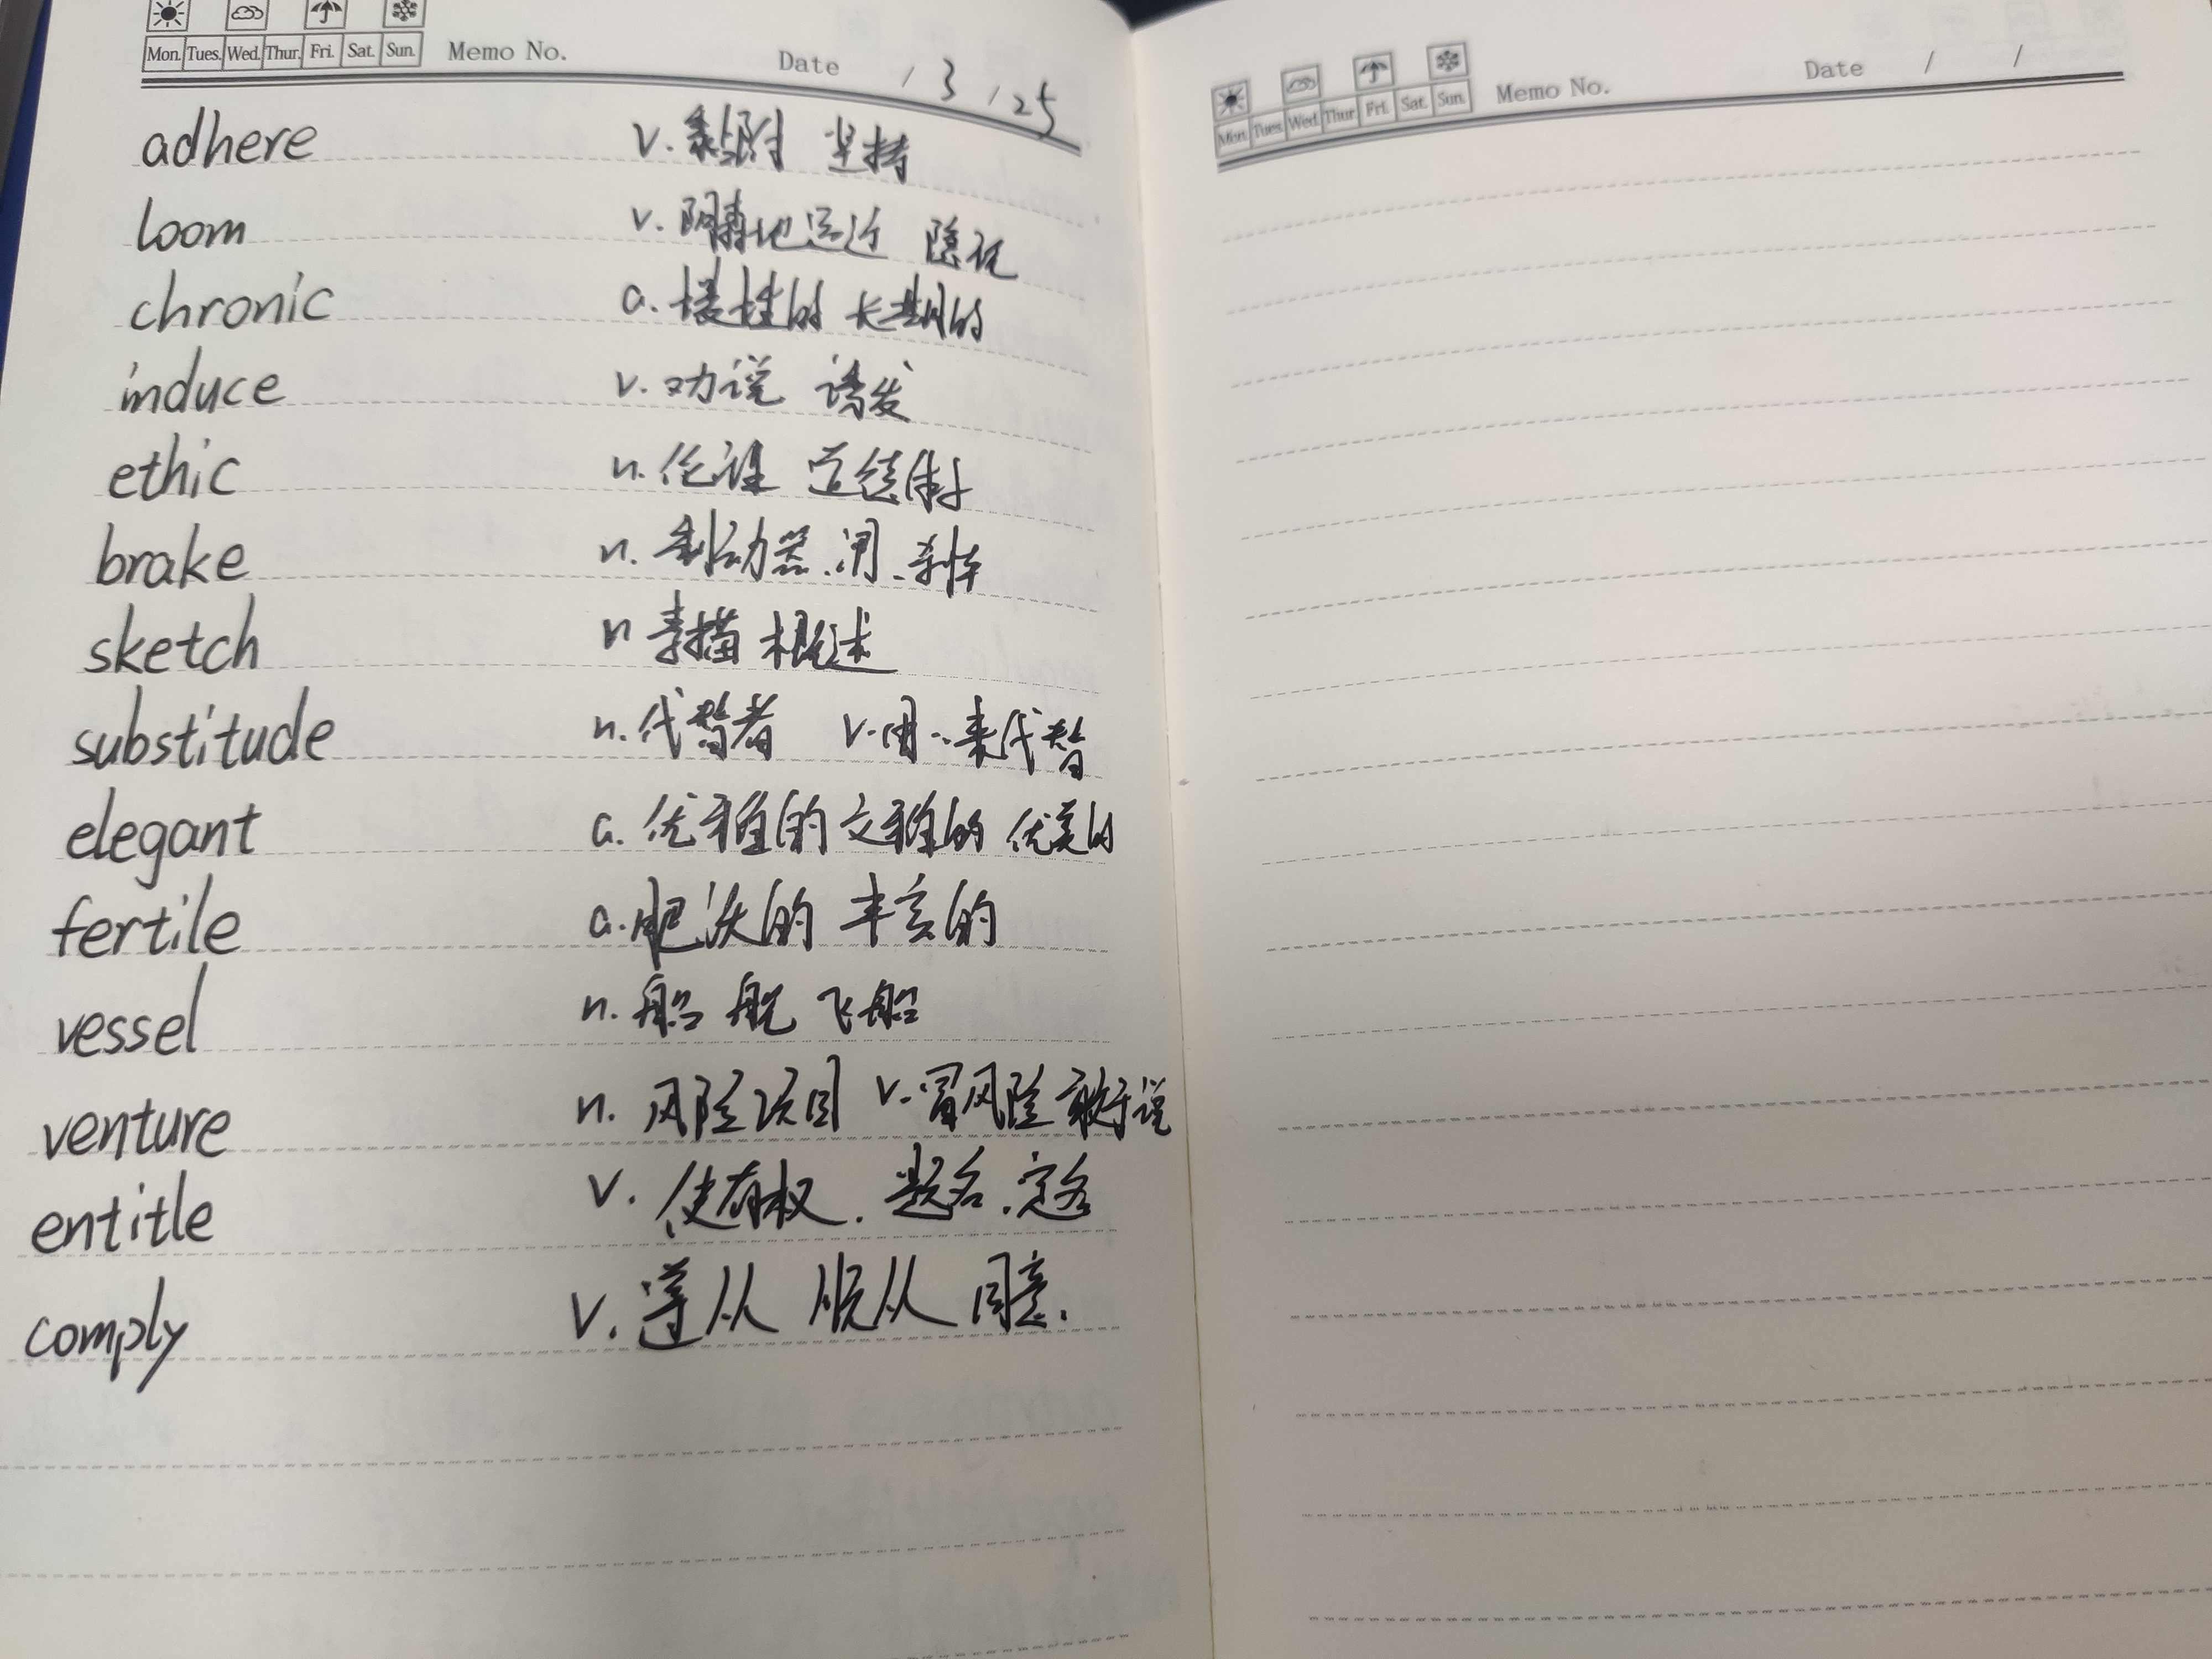 Mon. Tues. Wed. Thur. Fri. Sat. Sun. Memo No. Date / 3 / 25
adhere v. 黏附 坚持
loom v. 阴森地逼近 隐现
chronic a. 慢性的 长期的
induce v. 劝说 诱发
ethic n. 伦理 道德体系
brake n. 制动器.闸.刹车
sketch n 素描 概述
substitude n. 代替者 v.用..来代替
elegant a. 优雅的 文雅的 优美的
fertile a.肥沃的 丰富的
vessel n. 船 舰 飞船
venture n. 风险项目 v.冒风险 敢于说
entitle v. 使有权. 题名.定名
comply v. 遵从 顺从 同意.
Mon. Tues. Wed. Thur. Fri. Sat. Sun. Memo No. Date / /